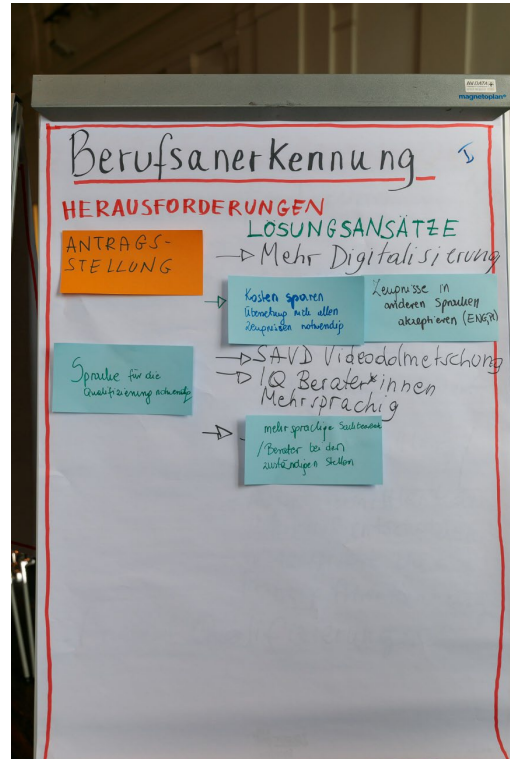 magnetoplan
Berufsanerkennung
I
HERAUSFORDERUNGEN
LÖSUNGSANSÄTZE
ANTRAGS-
STELLUNG
→ Mehr Digitalisierung
→ Kosten sparen
Übersetzung nicht allen
Zeugnissen notwendig
Zeugnisse in
anderen Sprachen
akzeptieren (ENGL)
Sprache für die
Qualifizierung notwendig
→ SAVD Videodolmetschung
→ IQ Berater*innen
Mehrsprachig
→ mehrsprachige
/Berater bei den
zuständigen Stellen